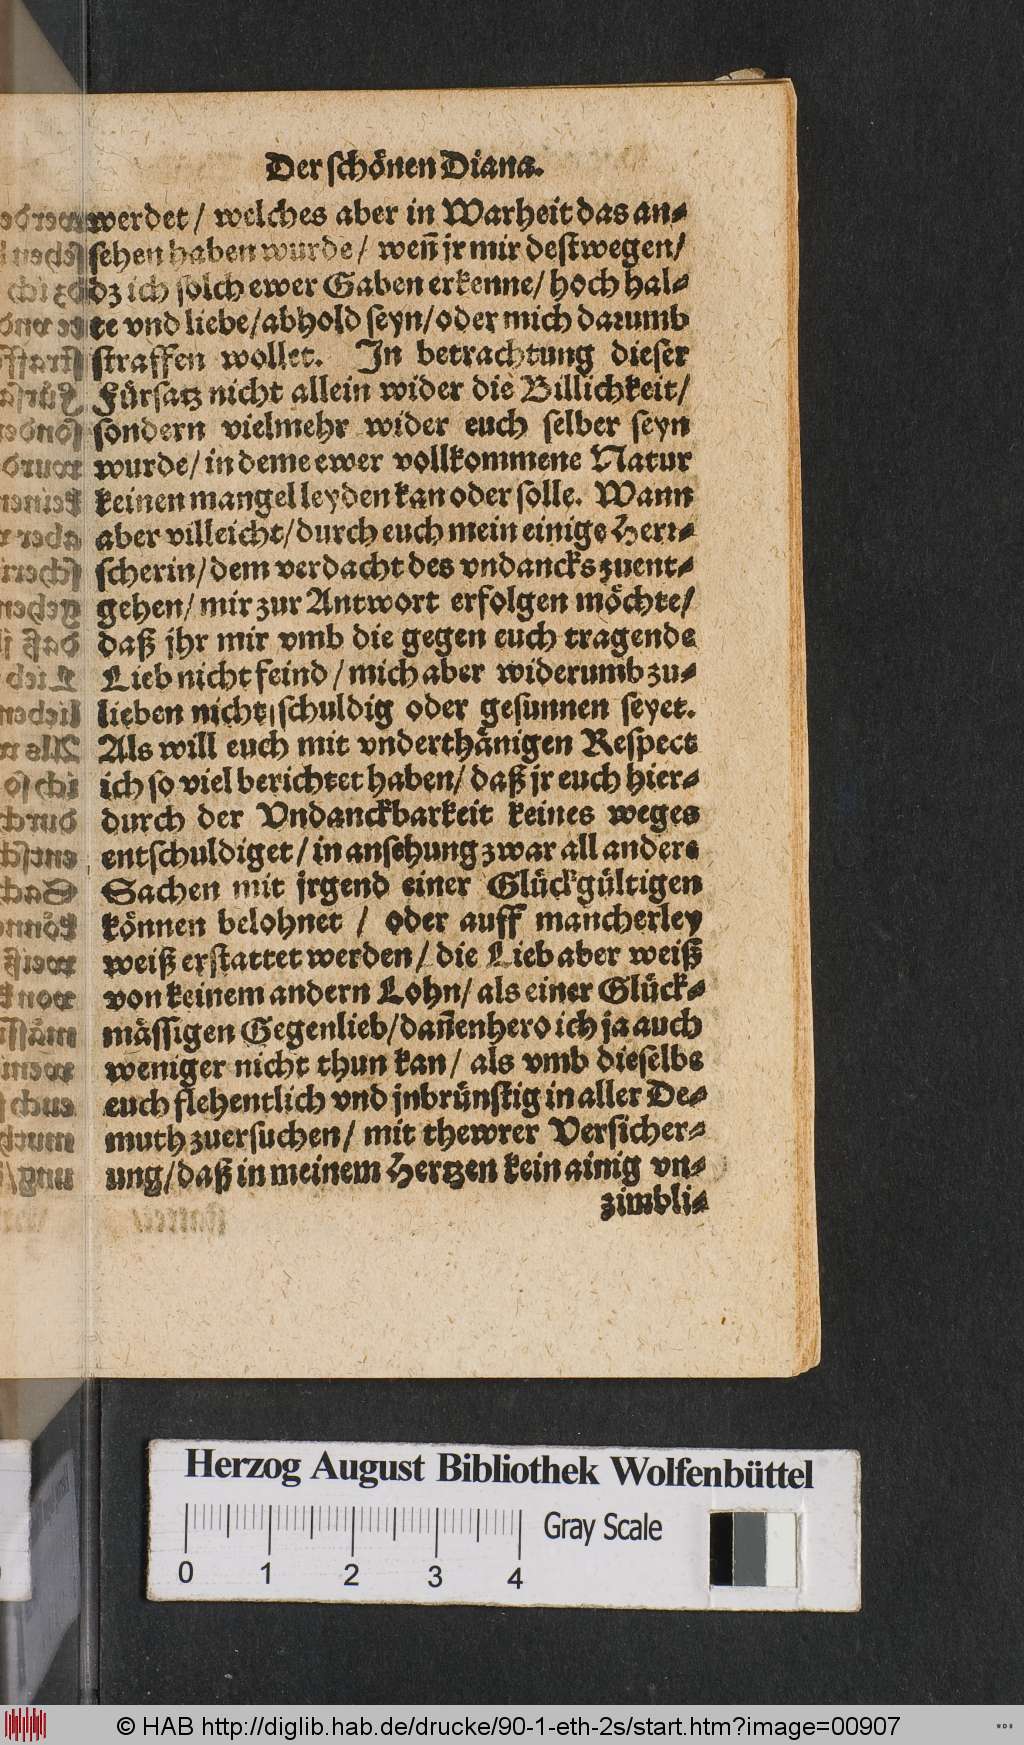 Der schönen Diana.
werdet / welches aber in Warheit das an⸗
sehen haben wurde / weñ jr mir destwegen /
dz ich solch ewer Gaben erkenne / hoch hal⸗
te vnd liebe / abhold seyn / oder mich darumb
straffen wollet. In betrachtung dieser
Fürsatz nicht allein wider die Billichkeit /
sondern vielmehr wider euch selber seyn
wurde / in deme ewer vollkommene Natur
keinen mangel leyden kan oder solle. Wann
aber villeicht / durch euch mein einige Herr⸗
scherin / dem verdacht des vndancks zuent⸗
gehen / mir zur Antwort erfolgen möchte /
daß jhr mir vmb die gegen euch tragende
Lieb nicht feind / mich aber widerumb zu⸗
lieben nicht schuldig oder gesunnen seyet.
Als will euch mit vnderthänigen Respect
ich so viel berichtet haben / daß jr euch hier⸗
durch der Vndanckbarkeit keines weges
entschuldiget / in ansehung zwar all andere
Sachen mit jrgend einer Glückgültigen
können belohnet / oder auff mancherley
weiß erstattet werden / die Lieb aber weiß
von keinem andern Lohn / als einer Glück⸗
mässigen Gegenlieb / dañenhero ich ja auch
weniger nicht thun kan / als vmb dieselbe
euch flehentlich vnd jnbrünstig in aller De⸗
muth zuersuchen / mit thewrer Versicher⸗
ung / daß in meinem Hertzen kein ainig vn⸗
zimbli⸗
Herzog August Bibliothek Wolfenbüttel
0 1 2 3 4 Gray Scale
© HAB http://diglib.hab.de/drucke/90-1-eth-2s/start.htm?image=00907